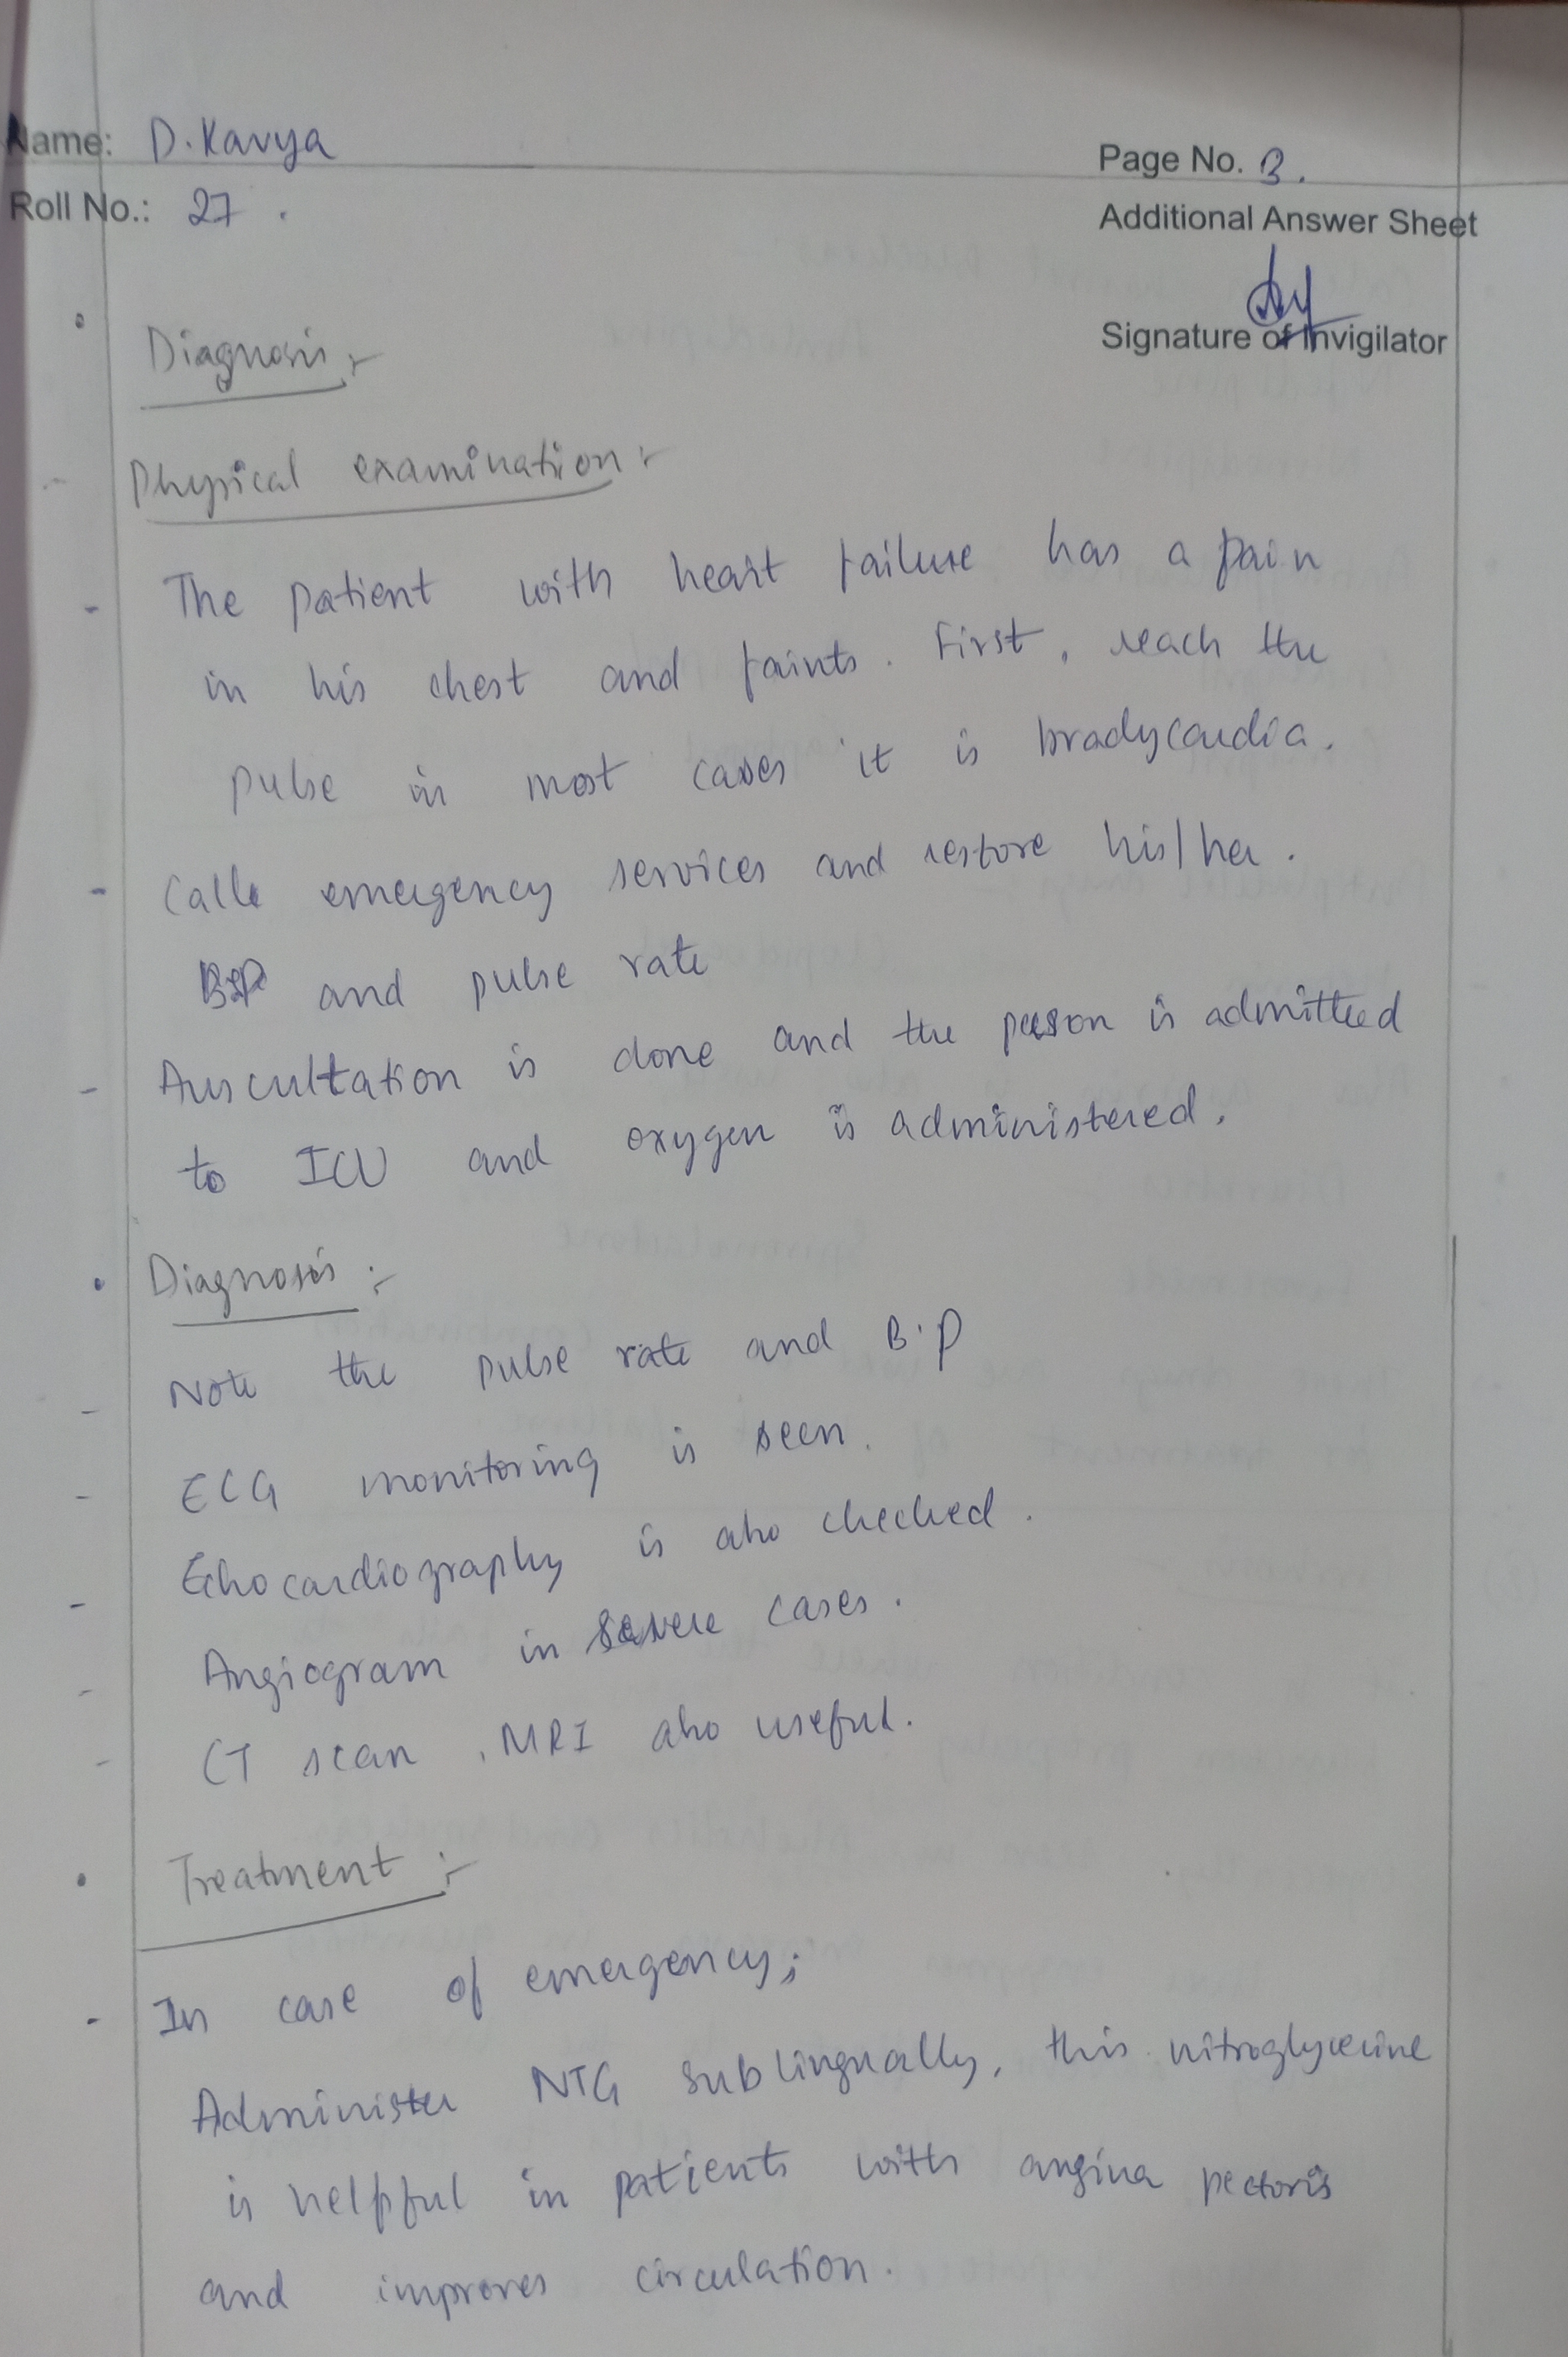 Name: D. Kavya
Page No. 3.
Roll No.: 27.
Additional Answer Sheet
Signature of Invigilator
• Diagnosis :-
Physical examination :-
- The patient with heart failure has a pain
in his chest and faints. First, reach the
pulse in most cases it is bradycardia.
- Calls emergency services and restore his/her.
B.P and pulse rate
- Auscultation is done and the person is admitted
to ICU and oxygen is administered.
• Diagnosis :-
- Note the pulse rate and B.P
- ECG monitoring is seen.
- Echocardiography is also checked.
- Angiogram in severe cases.
- CT scan, MRI also useful.
• Treatment :-
- In case of emergency;
Administer NTG sublingually, this nitroglycerine
is helpful in patients with angina pectoris
and improves circulation.